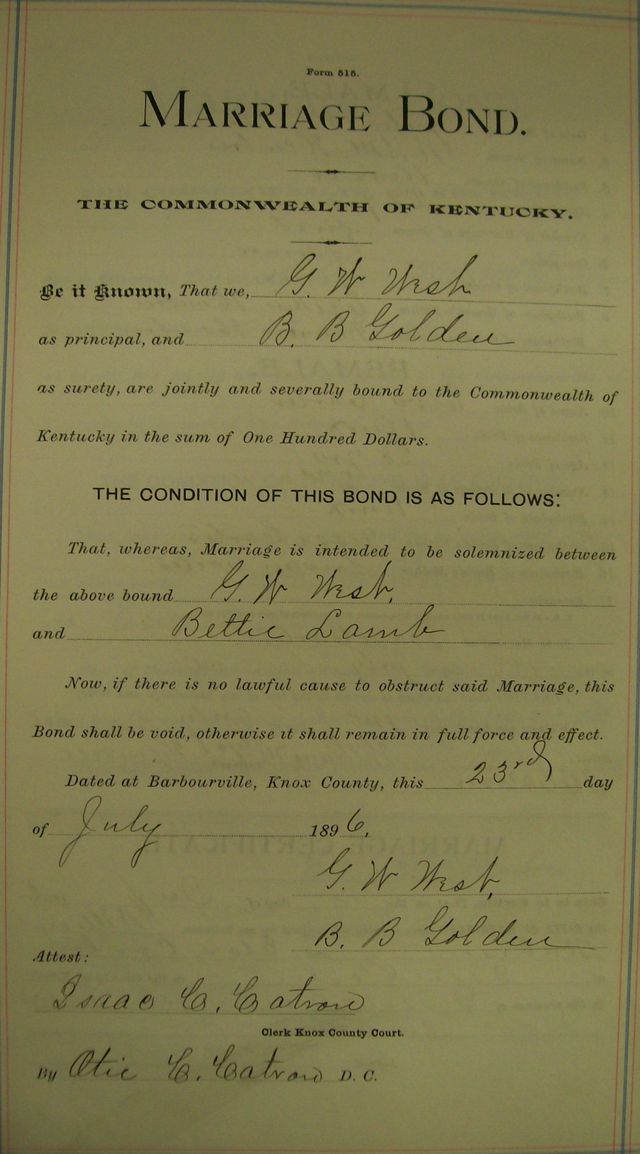 Form 515.
MARRIAGE BOND.
THE COMMONWEALTH OF KENTUCKY.
Be it Known, That we, G. W West
as principal, and B. B Golden
as surety, are jointly and severally bound to the Commonwealth of
Kentucky in the sum of One Hundred Dollars.
THE CONDITION OF THIS BOND IS AS FOLLOWS:
That, whereas, Marriage is intended to be solemnized between
the above bound G. W West,
and Bettie Lamb
Now, if there is no lawful cause to obstruct said Marriage, this
Bond shall be void, otherwise it shall remain in full force and effect.
Dated at Barbourville, Knox County, this 23rd day
of July 1896,
G. W West,
B. B Golden
Attest:
Isaac C. Catron
Clerk Knox County Court.
By Otie C. Catron D. C.